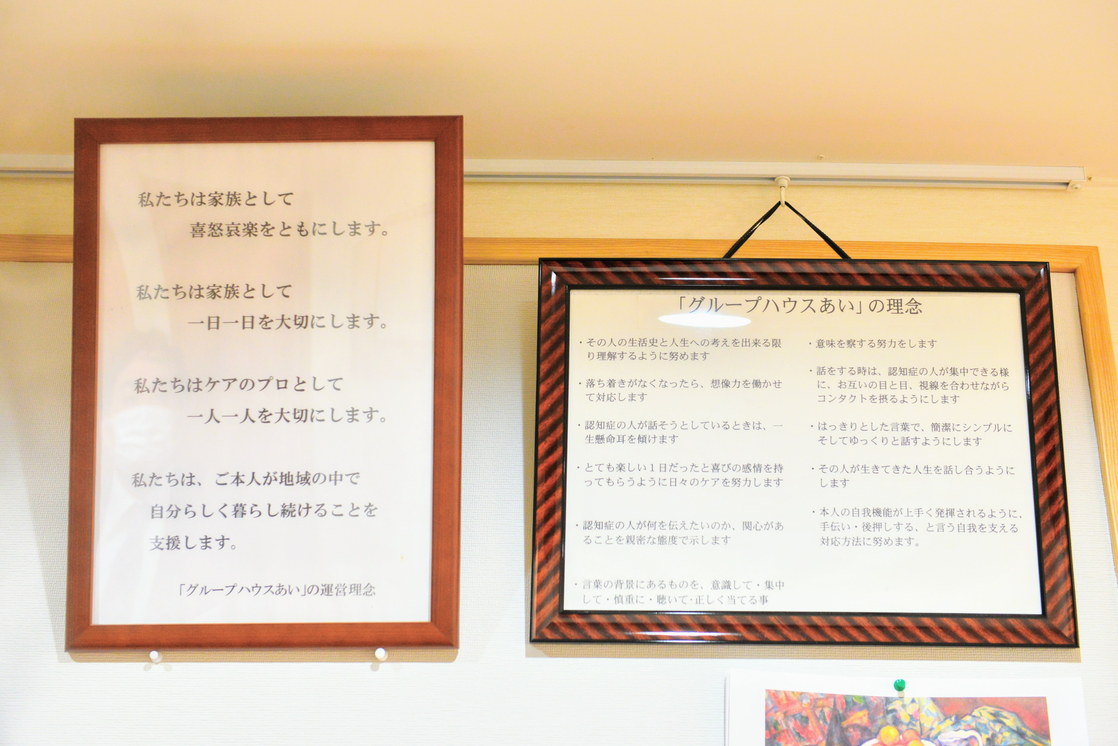 私たちは家族として
喜怒哀楽をともにします。
私たちは家族として
一日一日を大切にします。
私たちはケアのプロとして
一人一人を大切にします。
私たちは、ご本人が地域の中で
自分らしく暮らし続けることを
支援します。
「グループハウスあい」の運営理念
「グループハウスあい」の理念
・その人の生活史と人生への考えを出来る限
り理解するように努めます
・落ち着きがなくなったら、想像力を働かせ
て対応します
・認知症の人が話そうとしているときは、一
生懸命耳を傾けます
・とても楽しい１日だったと喜びの感情を持
ってもらうように日々のケアを努力します
・認知症の人が何を伝えたいのか、関心があ
ることを親密な態度で示します
・言葉の背景にあるものを、意識して・集中
して・慎重に・聴いて・正しく当てる事
・意味を察する努力をします
・話をする時は、認知症の人が集中できる様
に、お互いの目と目、視線を合わせながら
コンタクトを摂るようにします
・はっきりとした言葉で、簡潔にシンプルに
そしてゆっくりと話すようにします
・その人が生きてきた人生を話し合うように
します
・本人の自我機能が上手く発揮されるように、
手伝い・後押しする、と言う自我を支える
対応方法に努めます。